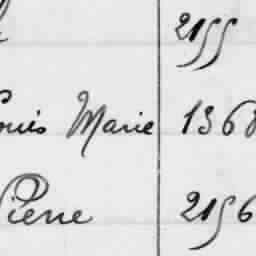 2155
Louis Marie 1368
Pierre 2156